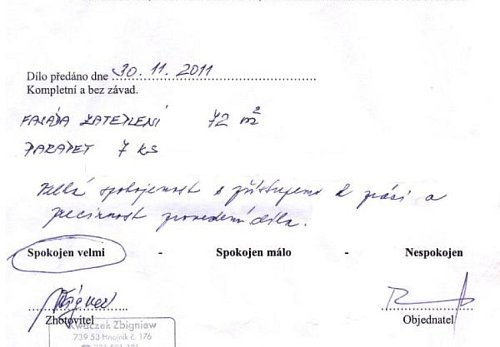 Dílo předáno dne 30. 11. 2011
Kompletní a bez závad.
FASÁDA ZATEPLENÍ 72 m²
PARAPET 7 KS
spokojenost s přístupem k práci a
provedení díla.
Spokojen velmi - Spokojen málo - Nespokojen
Zhotovitel Objednatel
Kwaczek Zbigniew
739 53 Hnojník č. 176